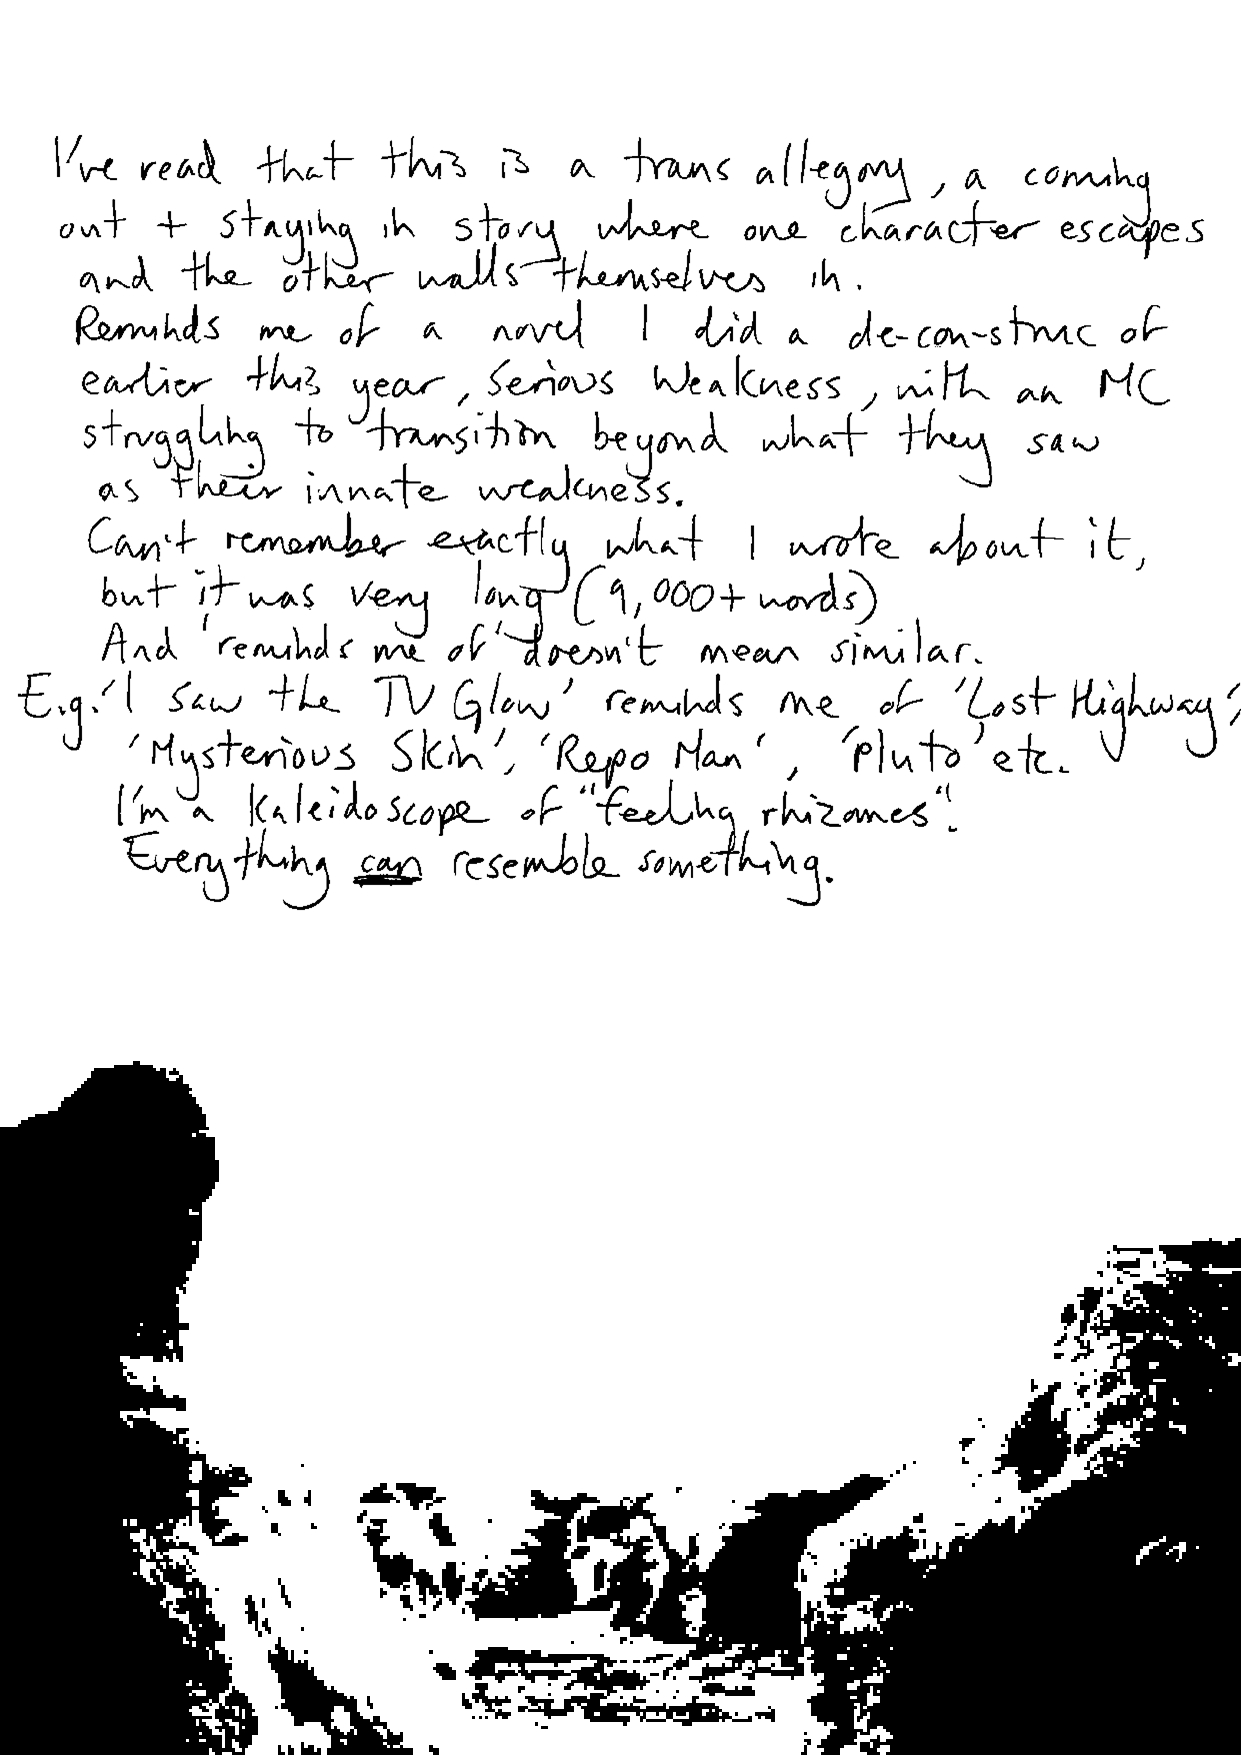 I've read that this is a trans allegory, a coming
out + staying in story where one character escapes
and the other walls themselves in.
Reminds me of a novel I did a de-con-struc of
earlier this year, Serious Weakness, with an MC
struggling to transition beyond what they saw
as their innate weakness.
Can't remember exactly what I wrote about it,
but it was very long (9,000+ words)
And 'reminds me of' doesn't mean similar.
E.g. 'I saw the TV Glow' reminds me of 'Lost Highway',
'Mysterious Skin', 'Repo Man', 'Pluto' etc.
I'm a kaleidoscope of "feeling rhizomes"!
Everything can resemble something.